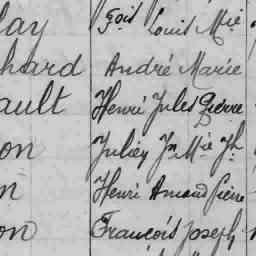 lay çois Louis Mie
hard André Marie
ault Henri Jules Pierre
on Julien Jn Mie Jh
n Henri Amand Pierre
on François Joseph